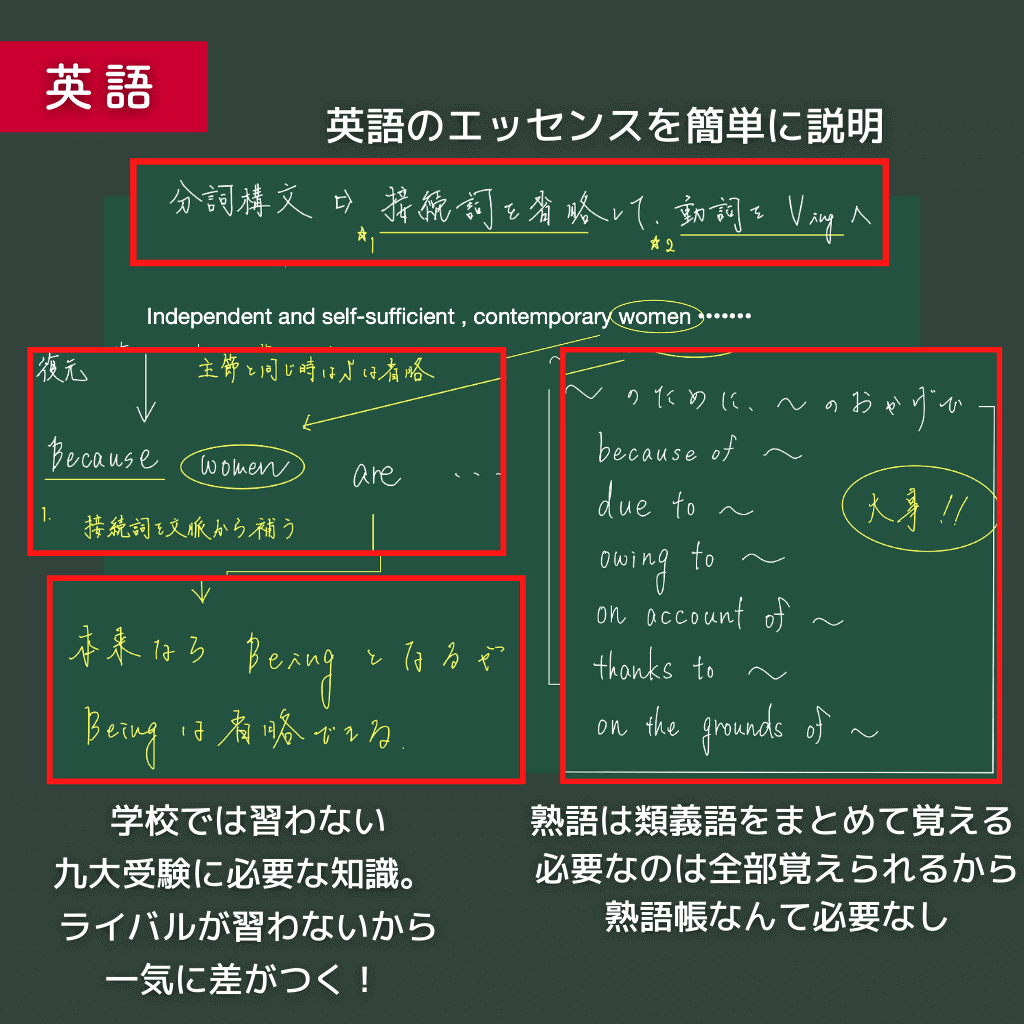 英語
英語のエッセンスを簡単に説明
分詞構文 ⇨ 接続詞を省略して、動詞を Vingへ
☆1 ☆2
Independent and self-sufficient , contemporary women •••••••
復元
主節と同じ時はSは省略
Because women are ...
1. 接続詞を文脈から補う
本来なら Being となるが
Being は省略できる.
〜のために、〜のおかげで
because of 〜
due to 〜
大事!!
owing to 〜
on account of 〜
thanks to 〜
on the grounds of 〜
学校では習わない
九大受験に必要な知識。
ライバルが習わないから
一気に差がつく！
熟語は類義語をまとめて覚える
必要なのは全部覚えられるから
熟語帳なんて必要なし